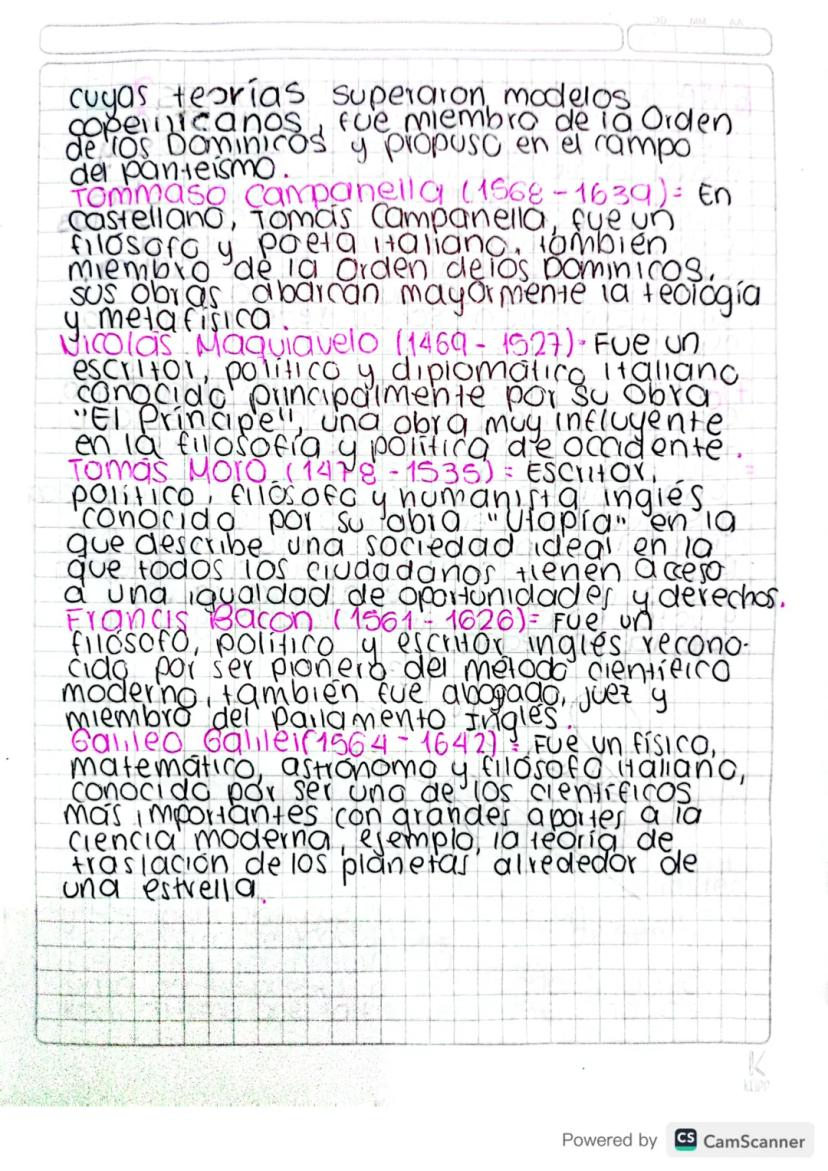 AA MM DD
cuyas teorías superaron modelos
copernicanos, fue miembro de la Orden
de los Dominicos y propuso en el campo
del panteísmo.
Tommaso Campanella (1568 - 1639): En
castellano, Tomás Campanella, fue un
filósofo y poeta italiano. también
miembro de la Orden de los Dominicos.
sus obras abarcan mayormente la teología
y metafísica.
Nicolás Maquiavelo (1469 - 1527): Fue un
escritor, político y diplomático italiano
conocido principalmente por su obra
"El Príncipe", una obra muy influyente
en la filosofía y política de occidente.
Tomás Moro (1478 - 1535): Escritor,
político, filósofo y humanista inglés
conocido por su obra "Utopía" en la
que describe una sociedad ideal en la
que todos los ciudadanos tienen acceso
a una igualdad de oportunidades y derechos.
Francis Bacon (1561 - 1626): Fue un
filósofo, político y escritor inglés recono-
cido por ser pionero del método científico
moderno, también fue abogado, juez y
miembro del Parlamento Inglés.
Galileo Galilei (1564 - 1642): Fue un físico,
matemático, astrónomo y filósofo italiano,
conocido por ser uno de los científicos
más importantes con grandes aportes a la
ciencia moderna, ejemplo, la teoría de
traslación de los planetas alrededor de
una estrella.
K
Powered by CS CamScanner